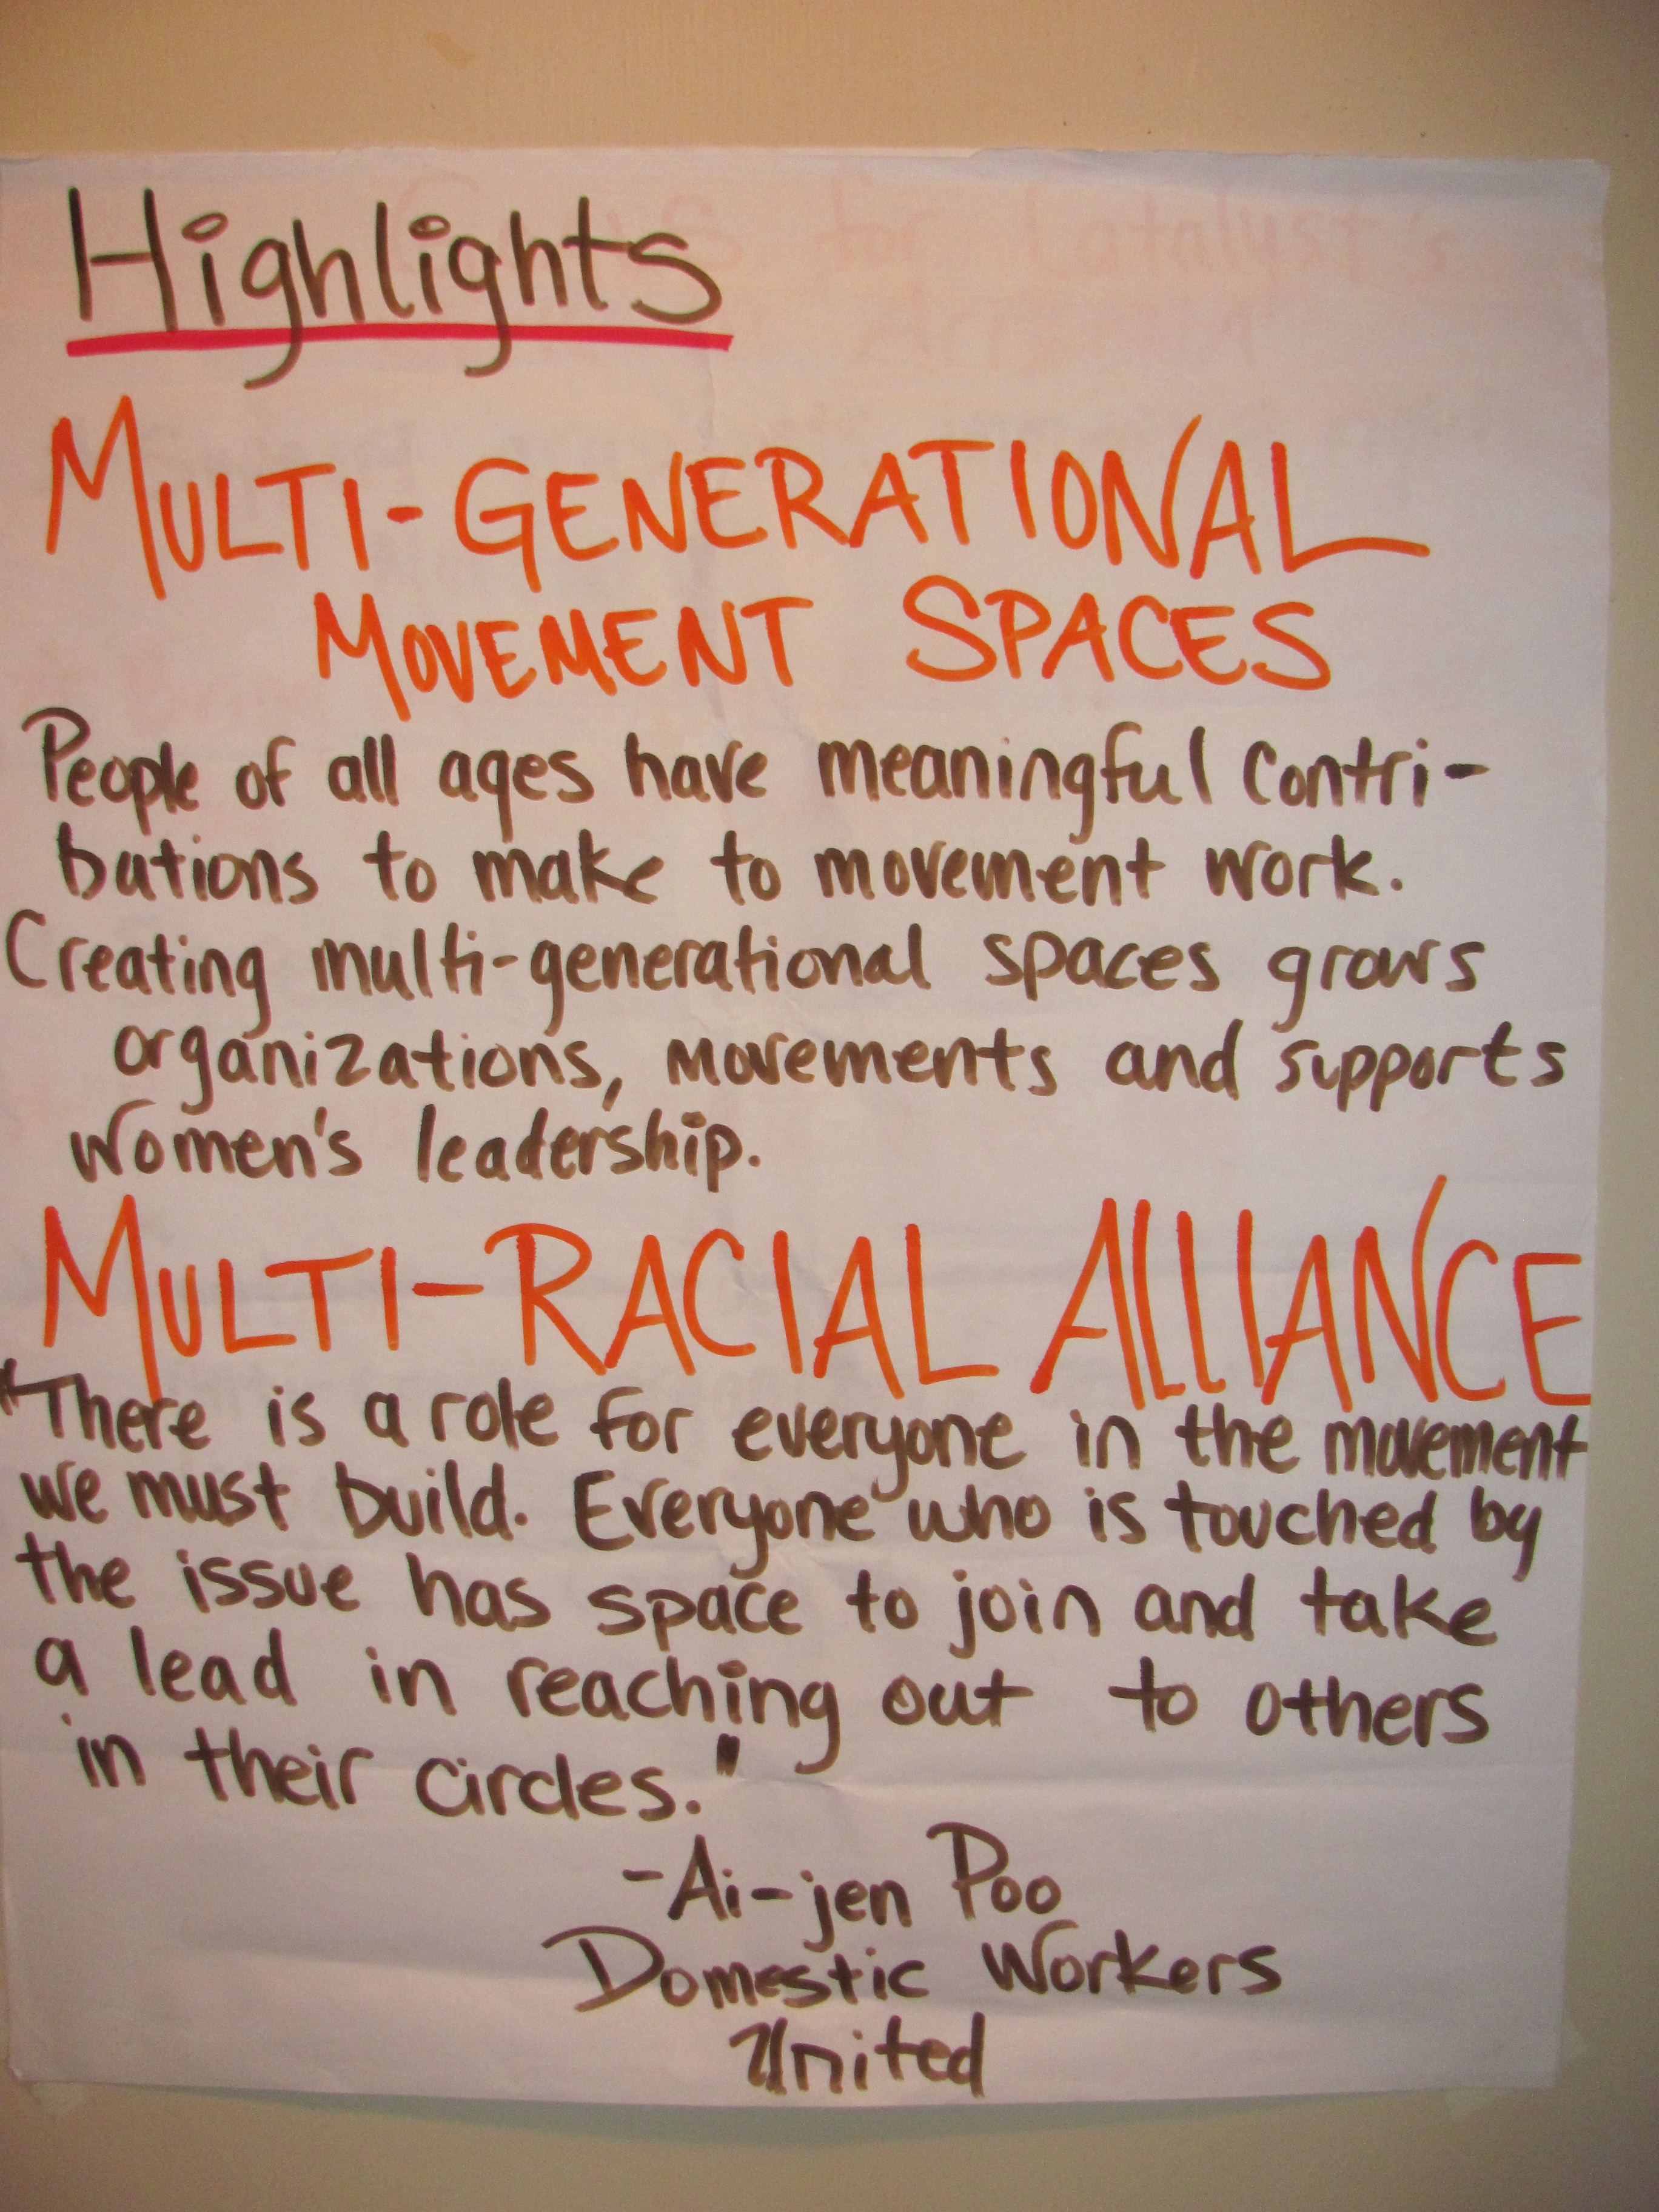 Highlights
MULTI-GENERATIONAL
MOVEMENT SPACES
People of all ages have meaningful contri-
butions to make to movement work.
Creating multi-generational spaces grows
organizations, movements and supports
women's leadership.
MULTI-RACIAL ALLIANCE
"There is a role for everyone in the movement
we must build. Everyone who is touched by
the issue has space to join and take
a lead in reaching out to others
in their circles."
-Ai-jen Poo
Domestic Workers
United